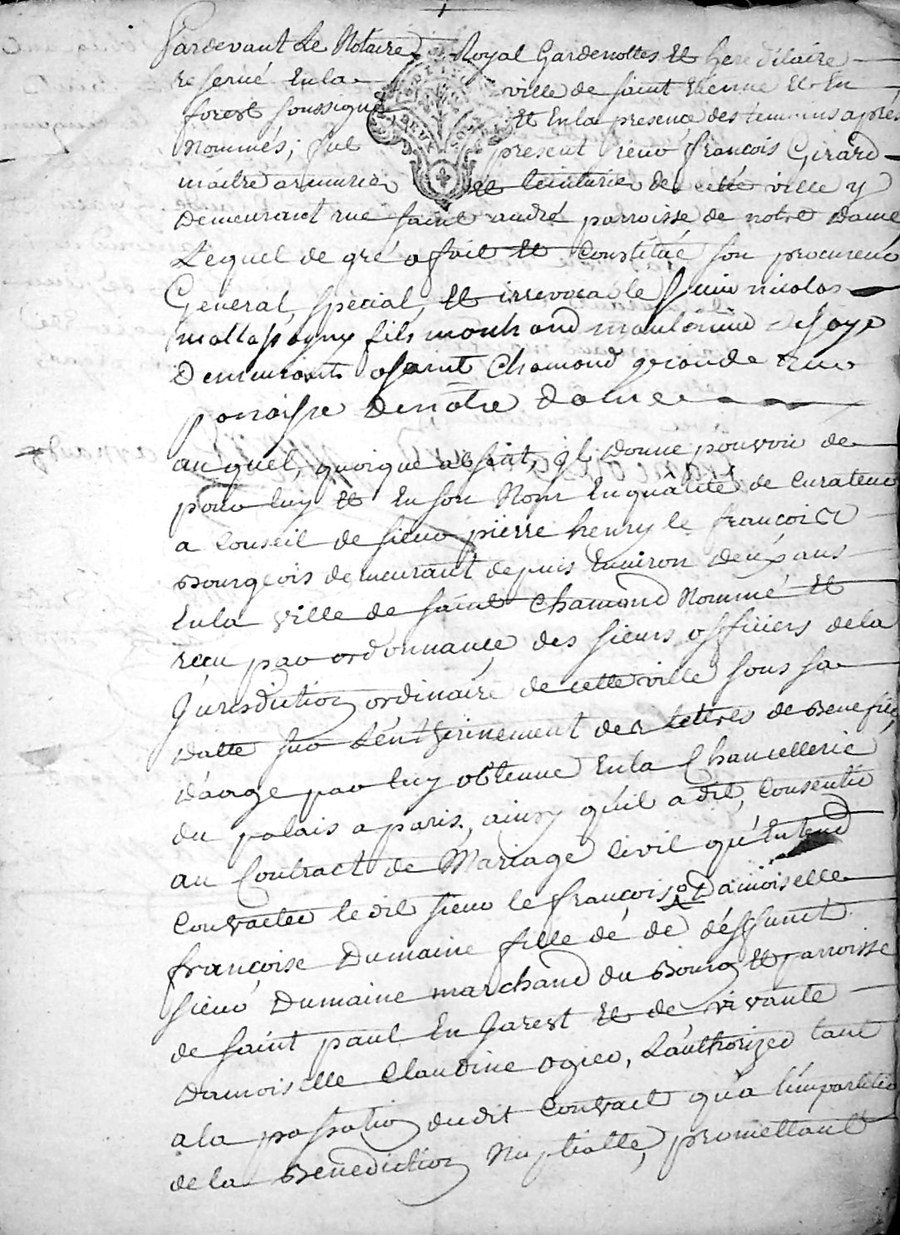 Pardevant Le Notaire Royal Gardenottes Et hereditaire
reservé Enla ville de saint Etienne Et En
forest soussigné Et Enla presence des temoins aprés
Nommés, fut present sieur françois Girard
maitre armurier de cette ville y
Demeurant rue saint andré parroisse de notre Dame
Lequel de gré a fait Et Constitué son procureur
General, special, Et irrevocable sieur nicolas
fils marchand de soye
Demeurant a saint Chamond grande rue
paroisse De notre dame
au quel, quoique absent, Il Donne pouvoir de
pour luy Et En son Nom En qualité de Curateur
a Conseil de sieur pierre henry le françois
Bourgeois demeurant depuis Environ deux ans
Enla ville de saint Chamond Nommé Et
receu par ordonnance des sieurs officiers dela
Jurisdiction ordinaire de cette ville sous sa
datte sur L'entherinement des lettres de Benefice
d'aage par luy obtenue Enla Chancellerie
du palais a paris, ainsy qu'il a dit, Consentir
au Contract de Mariage Civil qu'Entend
Contracter ledit sieur le françois & Damoiselle
françoise Dumaine fille dé de déffunt
sieur Dumaine marchand du Bourg Et parroisse
de saint paul En Jarest Et de vivante
Damoiselle Claudine ogier, L'authorizer tant
a la passation dudit Contract qu'a l'impartition
de la Benediction Nuptialle, promettant